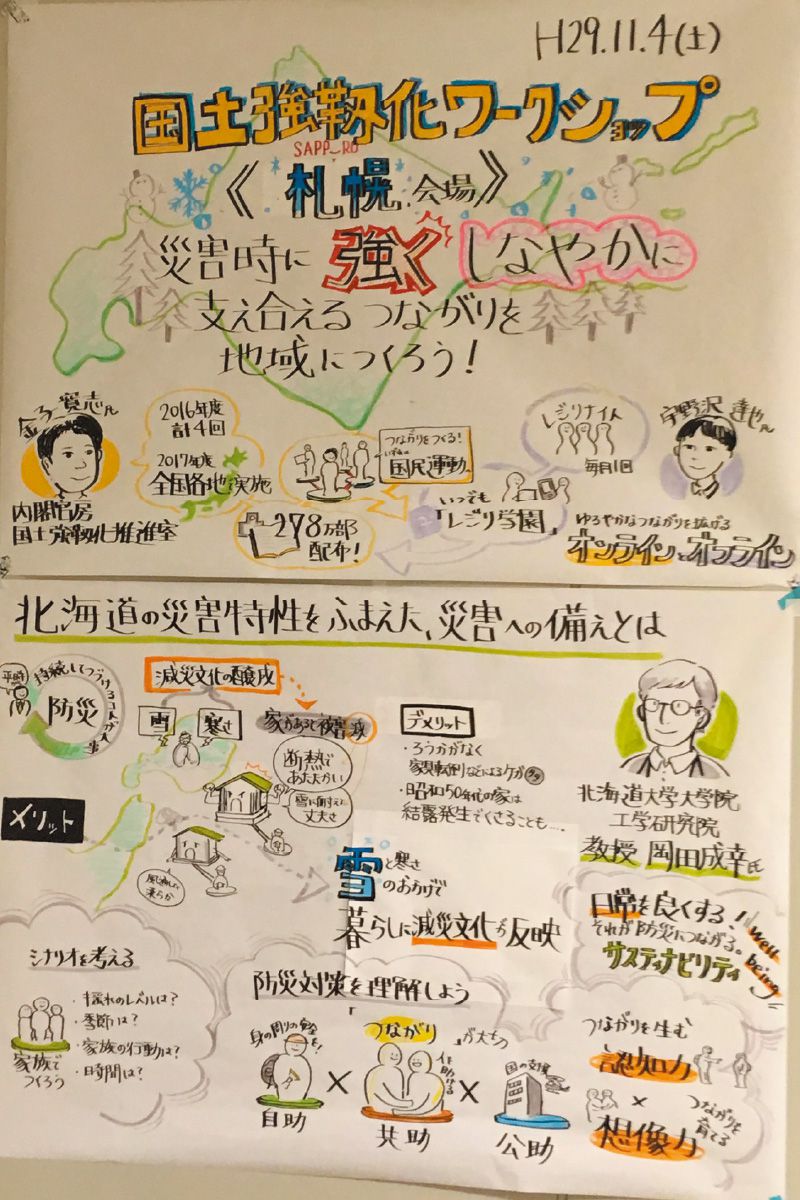 H29.11.4(土)
国土強靱化ワークショップ
SAPPORO
《札幌会場》
災害時に強くしなやかに
支え合えるつながりを
地域につくろう!
金子賢志さん
内閣官房
国土強靱化推進室
2016年度
計4回
2017年度
全国各地で実施
278万部
配布!
つながりをつくる!
国民運動
レジリナイト
毎月1回
いつでも
「レジリ学園」
宇野沢達也さん
ゆるやかなつながりを拡げる
オンラインとオフライン
北海道の災害特性をふまえた、災害への備えとは
平時
持続してつづけるコトが大事
防災
減災文化の醸成
雪
寒さ
家があるじ被害減
断熱で
あたたかい
雪に耐えて
丈夫さ
メリット
デメリット
・ろうかがなく
家具転倒などによるケガ多
・昭和50年代の家は
結露発生でくさることも…
雪と寒さ
のおかげで
暮らしに減災文化が反映
北海道大学大学院
工学研究院
教授 岡田成幸氏
日常を良くする!
それが防災につながる。
サスティナビリティ
well being
シナリオを考える
・揺れのレベルは?
・季節は?
・家族の行動は?
・時間は?
家族で
つくろう
防災対策を理解しよう
身の周りの安全を!
自助
×
「つながり」が大切
共助
×
国の支援
公助
つながりを生む
認知力
×
つながりを
育てる
想像力